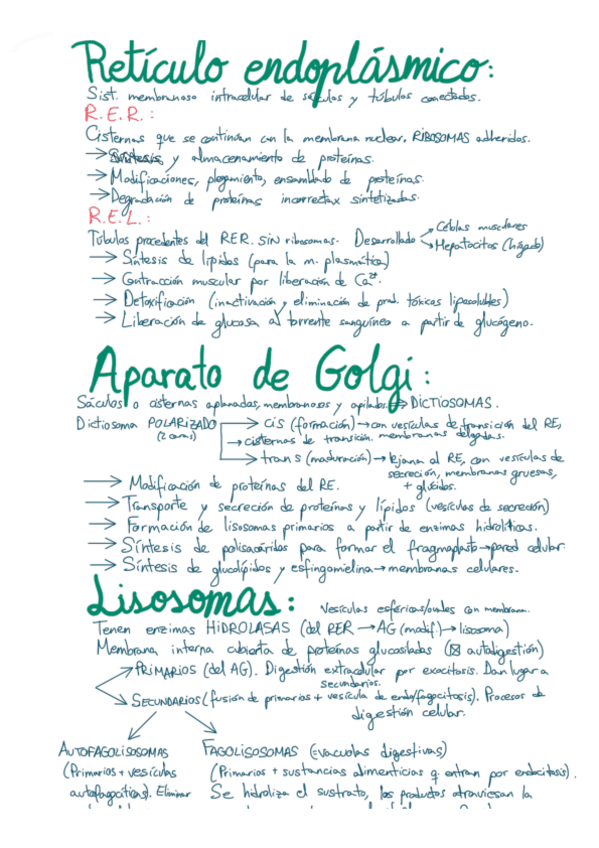 Retículo endoplásmico:
Sist. membranoso intracelular de sáculos y túbulos conectados.
R.E.R.:
Cisternas que se continúan con la membrana nuclear. RIBOSOMAS adheridos.
→ Síntesis y almacenamiento de proteínas.
→ Modificaciones, plegamiento, ensamblado de proteínas.
→ Degradación de proteínas incorrectax sintetizadas.
R.E.L.:
Túbulos procedentes del RER. SIN ribosomas. Desarrollado → Células musculares
→ Hepatocitos (hígado)
→ Síntesis de lípidos (para la m. plasmática)
→ Contracción muscular por liberación de Ca²⁺.
→ Detoxificación (inactivación y eliminación de prod. tóxicos liposolubles)
→ Liberación de glucosa al torrente sanguíneo a partir de glucógeno.
Aparato de Golgi:
Sáculos o cisternas aplanadas, membranosos y apilados → DICTIOSOMAS.
Dictiosoma POLARIZADO → cis (formación) → con vesículas de transición del RE,
(2 caras) → cisternas de transición. membranas delgadas.
→ trans (maduración) → lejana al RE, con vesículas de
secreción, membranas gruesas,
+ glúcidos.
→ Modificación de proteínas del RE.
→ Transporte y secreción de proteínas y lípidos (vesículas de secreción)
→ Formación de lisosomas primarios a partir de enzimas hidrolíticas.
→ Síntesis de polisacáridos para formar el fragmoplasto → pared celular.
→ Síntesis de glucolípidos y esfingomielina → membranas celulares.
Lisosomas: Vesículas esféricas/ovales con membrana.
Tenen enzimas HIDROLASAS (del RER → AG (modif.) → lisosoma)
Membrana interna cubierta de proteínas glucosiladas (☒ autodigestión)
→ PRIMARIOS (del AG). Digestión extracelular por exocitosis. Dan lugar a
secundarios.
→ SECUNDARIOS (fusión de primarios + vesícula de endo/fagocitosis). Procesos de
digestión celular.
AUTOFAGOLISOSOMAS FAGOLISOSOMAS (Evacuolas digestivas)
(Primarios + vesículas (Primarios + sustancias alimenticias q. entran por endocitosis).
autofagocíticas). Eliminar Se hidroliza el sustrato, los productos atraviesan la